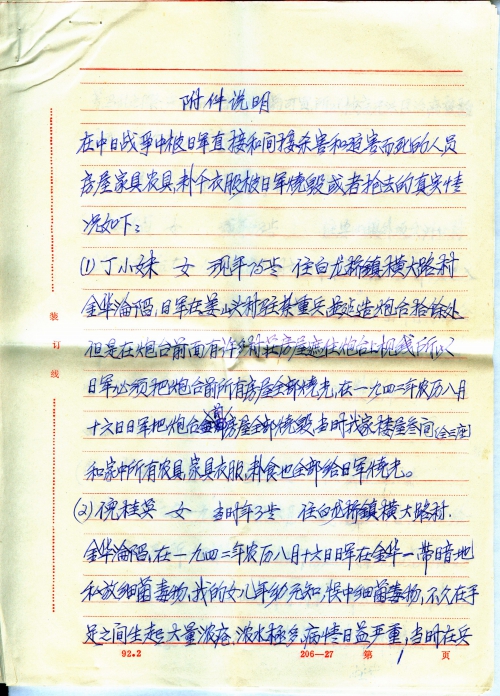 附件说明
在中日战争中被日军直接和间接杀害和迫害而死的人员
房屋家具农具,料个衣服被日军烧毁或者抢去的真实情
况如下:
(1) 丁小妹 女 现年75岁 住白龙桥镇横大路村
金华沦陷,日军在姜山头村驻扎重兵并建造炮台拾余处
但是在炮台前面有许多村庄房屋遮住炮台上机线,所以
日军必须把炮台前所有房屋全部烧光,在一九四二年农历八月
十六日日军把炮台前房屋全部烧毁,当时我家楼屋叁间
和家中所有农具,家具衣服,粮食也全部给日军烧光。
(2) 倪桂英 女 当时年3岁 住白龙桥镇横大路村.
金华沦陷,在一九四二年农历八月十六日日军在金华一带暗地
私放细菌毒物,我的女儿年幼无知,误中细菌毒物,不久在手
足之间生起大量浓疮,浓水极多,病情日益严重,当时在兵
装订线
92.2 206—27 第 1 页